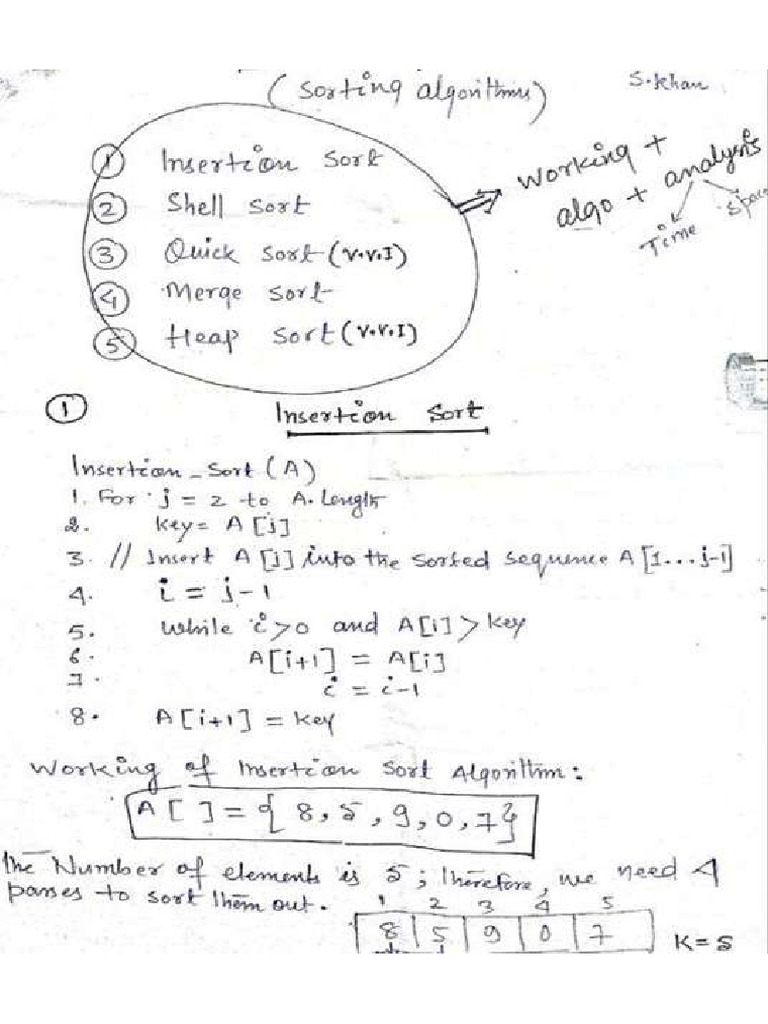 (Sorting algorithms)
S.khan
① Insertion Sort
② Shell Sort
③ Quick Sort (V.V.I)
④ Merge Sort
⑤ Heap Sort (V.V.I)
⇒ Working +
algo + analysis
Time Space
① Insertion Sort
Insertion_Sort (A)
1. For j = 2 to A.Length
2. key = A[j]
3. // Insert A[j] into the sorted sequence A[1...j-1]
4. i = j-1
5. While i>0 and A[i] > key
6. A[i+1] = A[i]
7. i = i-1
8. A[i+1] = key
Working of Insertion Sort Algorithm:
A[ ] = {8, 5, 9, 0, 7}
The Number of elements is 5; Therefore, we need 4
passes to sort them out.
1 2 3 4 5
8 5 9 0 7 K=5